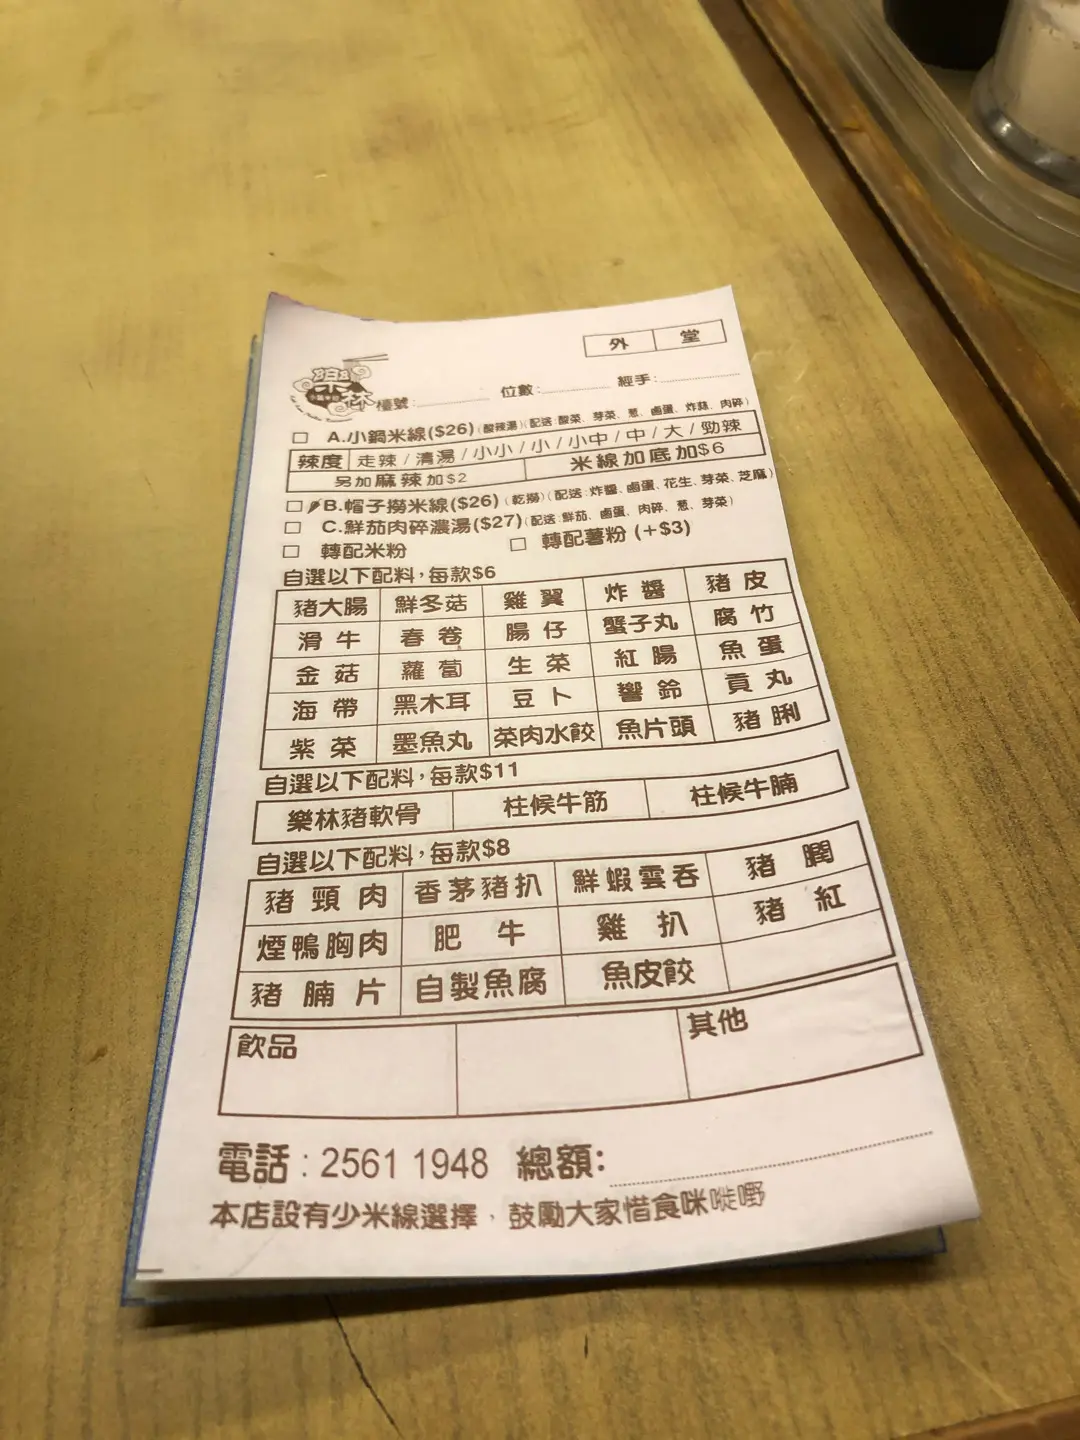 外 堂
樂林 檯號: 位數: 經手:
□ A.小鍋米線($26)(酸辣湯)(配送:酸菜、芽菜、葱、鹵蛋、炸蒜、肉碎)
辣度 走辣/清湯/小小/小/小中/中/大/勁辣
另加麻辣加$2 米線加底加$6
□ B.帽子撈米線($26)(乾撈)(配送:炸醬、鹵蛋、花生、芽菜、芝麻)
□ C.鮮茄肉碎濃湯($27)(配送:鮮茄、鹵蛋、肉碎、葱、芽菜)
□ 轉配米粉 □ 轉配薯粉 (+$3)
自選以下配料,每款$6
豬大腸 鮮冬菇 雞翼 炸醬 豬皮
滑牛 春卷 腸仔 蟹子丸 腐竹
金菇 蘿蔔 生菜 紅腸 魚蛋
海帶 黑木耳 豆卜 響鈴 貢丸
紫菜 墨魚丸 菜肉水餃 魚片頭 豬脷
自選以下配料,每款$11
樂林豬軟骨 柱候牛筋 柱候牛腩
自選以下配料,每款$8
豬頸肉 香茅豬扒 鮮蝦雲吞 豬膶
煙鴨胸肉 肥牛 雞扒 豬紅
豬腩片 自製魚腐 魚皮餃
飲品 其他
電話:2561 1948 總額:
本店設有少米線選擇,鼓勵大家惜食咪嘥嘢